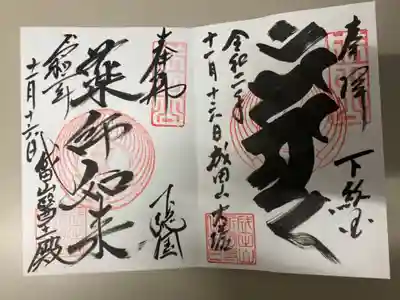 奉拝
下総国
令和二年
十一月十六日成田山大塔
奉拝
下総国
薬師如来
令和二年
十一月十六日
成田山醫王殿